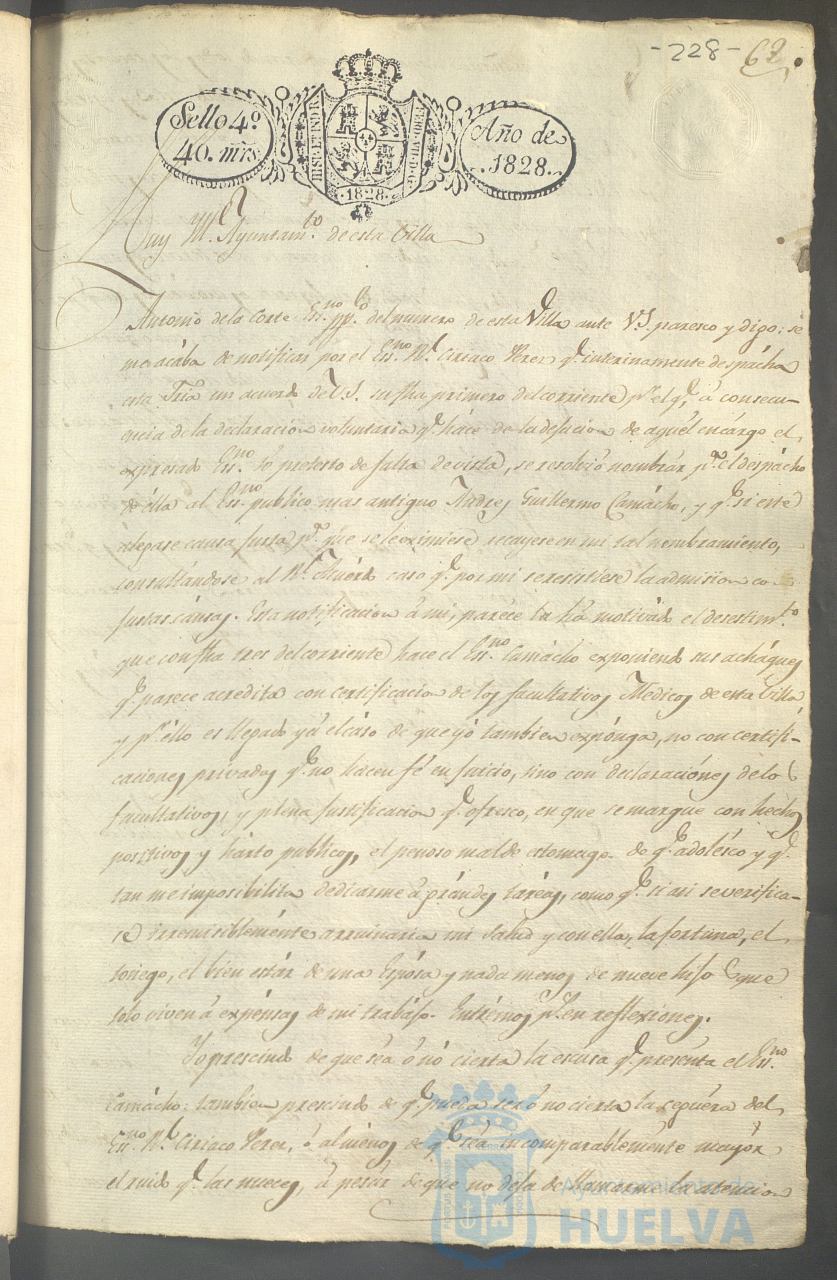 -228- 62
Sello 4º
40. mrs
HISP. ET IND. R.
FERD. VII. D. G.
·1828·
Año de
.1828.
Muy Ylº. Ayuntamto. de esta Villa
Antonio de la Corte Essno. ppco. del numero de esta Villa ante V.S. paresco y digo: se
me acába de notificar por el Essno. Dn. Ciriaco Perez qe. interinamente despácha
esta Sria un acuerdo de V.S. su fha primero del corriente pr. el qe. á consecu-
encia de la declaracion voluntaria qe. háce de la dejacion de aquél encárgo el
expresado Essno. só pretesto de falta de vista, se resolvió nombrár pa. el despácho
de élla al Essno. publico mas antiguo Andres Guillermo Camácho, y qe. si este
alegase causa justa pa. que se le eximiese recayese en mi tal nombramiento,
consultándose al Rl. Acuérdo caso qe. por mi se resistiese la admision con
justas cáusas. Esta notificacion á mi, paréce la há motivado el desestimto.
que con fha tres del corriente hace el Essno. Camácho exponiendo sus acháques
qe. parece acredita con certificacion de los facultativos Medicos de esta Villa,
y pr. éllo es llegado yá el cáso de que yó tambien expónga, no con certifi-
caciones privadas qe. no hacen fé en juicio, sino con declaraciónes de los
facultativos, y plena justificacion qe. ofresco, en que se marque con hechos
positivos y hárto publicos, el penoso mal de estomago de qe. adolésco y qe.
tan me imposibilita dedicarme á grándes taréas, como qe. si asi se verifica-
se irremisiblemente arruinaria mi salud y con ella, la fortuna, el
sosiego, el bien estár de una Espósa y nada menos de nueve hijos que
solo viven á expénsas de mi trabájo. Entrémos ps. en reflexiones.
Yo prescindo de que séa ó nó cierta la escusa qe. presenta el Essno.
Camácho: tambien prescindo de qe. pueda ser ó no cierta la cegüera del
Essno. Dn. Ciriaco Perez, ó al menos de qe. séa incomparablemente mayór
el ruido qe. las nueces, á pesár de que no deja de llamarme la atencion
Ayuntamiento de
HUELVA